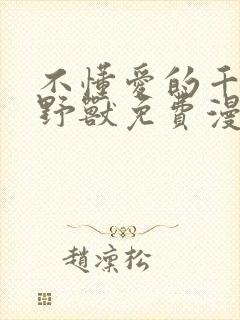 不懂愛的千
野獸免費漫
趙凜松